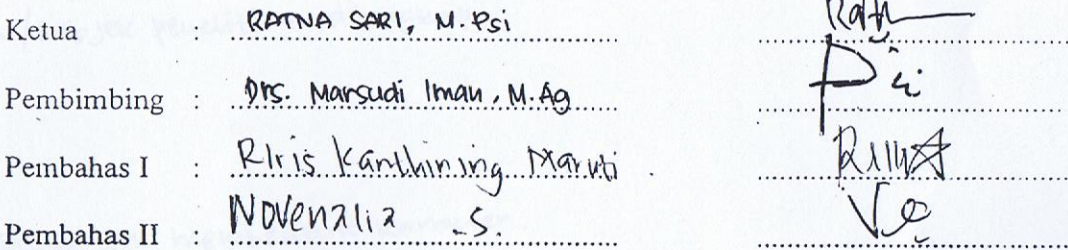 Ketua : RATNA SARI, M.Psi
Pembimbing : Drs. Marsudi Iman, M.Ag
Pembahas I : RIris Kanthining Maruti
Pembahas II : Novenzlia S.